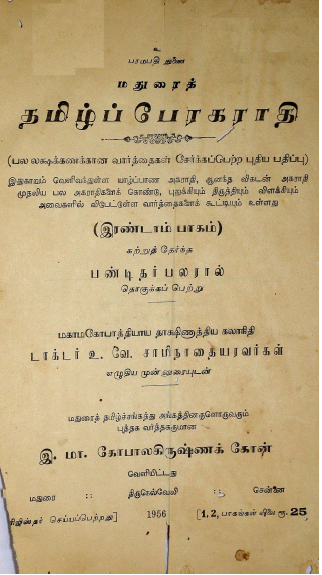 உ
பரமபதி துணை
மதுரைத்
தமிழ்ப் பேரகராதி
(பல லக்ஷக்கணக்கான வார்த்தைகள் சேர்க்கப்பெற்ற புதிய பதிப்பு)
இதுகாறும் வெளிவந்துள்ள யாழ்ப்பாண அகராதி, ஆனந்த விகடன் அகராதி
முதலிய பல அகராதிகளைக் கொண்டு, புதுக்கியும் திருத்தியும் விளக்கியும்
அவைகளில் விடுபட்டுள்ள வார்த்தைகளைக் கூட்டியும் உள்ளது
(இரண்டாம் பாகம்)
கற்றுத் தேர்ந்த
பண்டிதர்பலரால்
தொகுக்கப் பெற்று
மகாமகோபாத்தியாய தாக்ஷிணாத்திய கலாநிதி
டாக்டர் உ. வே. சாமிநாதையரவர்கள்
எழுதிய முன்னுரையுடன்
மதுரைத் தமிழ்ச்சங்கத்து அங்கத்தினரு‌ளொருவரும்
புத்தக வர்த்தகருமான
இ. மா. கோபாலகிருஷ்ணக் கோன்
வெளியிட்டது
மதுரை :: திருநெல்வேலி :: சென்னை
ரிஜிஸ்தர் செய்யப்பெற்றது] 1956 [1, 2, பாகங்கள் விலை ரூ. 25